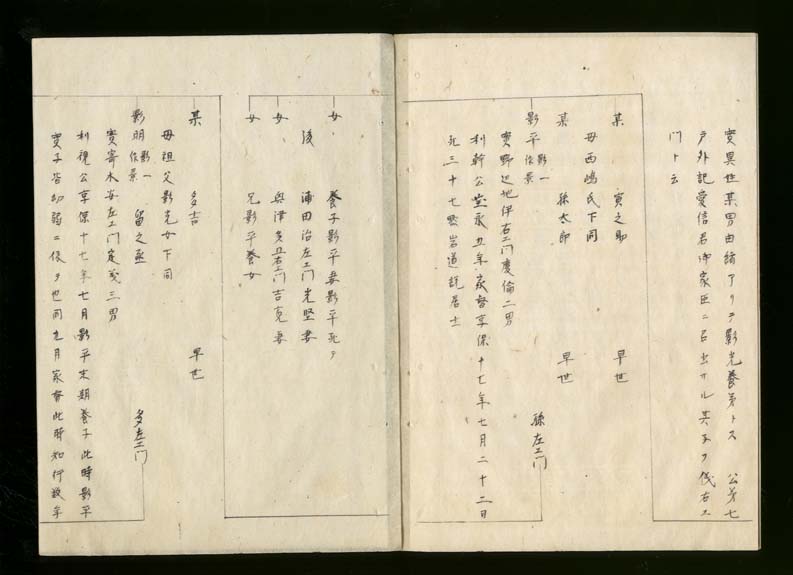 実異世某男由緒アリテ影光養弟トス　公弟七
戸外記愛信君御家臣ニ召出サル其子ヲ伐右エ
門ト云
某　寅之助　早世
母西嶋氏下同
某　孫太郎　早世
影平 影一作景　孫左エ門
実野辺地伊右エ門慶倫二男
利幹公宝永五年家督享保十七年七月二十二日
死三十七岩道説居士
女　養子影平妻影平死ヲ
後　浦田治左エ門光堅妻
女　奥津多五右エ門吉克妻
女　兄影平養女
某　多吉　早世
母祖父影光女下同
影明 影一作景　留之丞　多左エ門
実寄木安左エ門定義三男
利視公享保十七年七月影平末期養子此時影平
実子皆幼弱ニ依テ也同九月家督此時知行数年